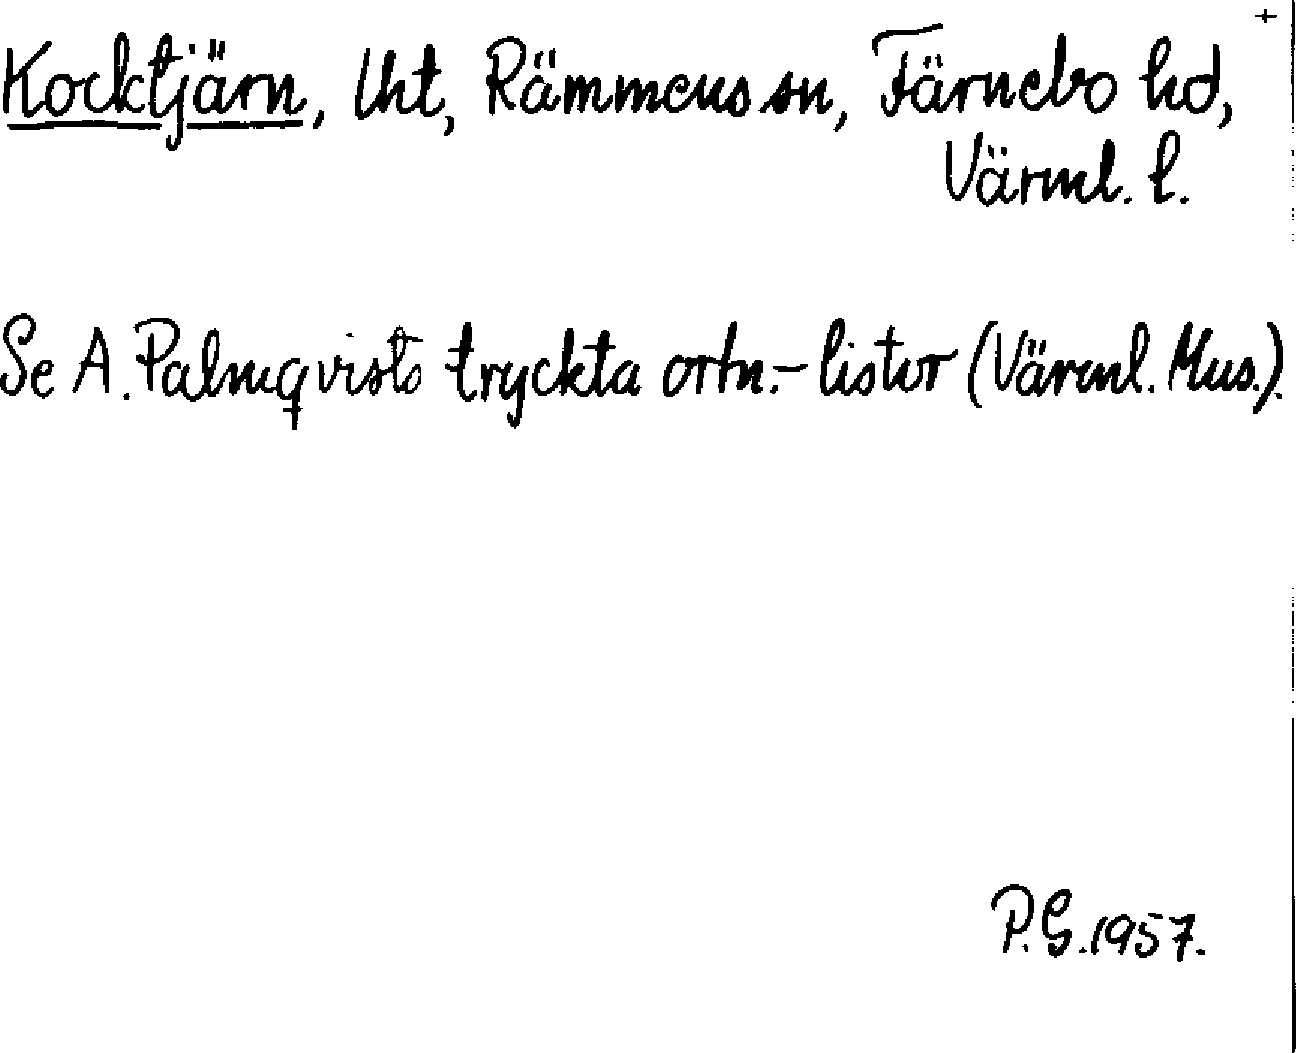 +
Kocktjärn, lht, Rämmens sn, Färnebo hd,
Värml. l.
Se A. Palmqvists tryckta ortn.-listor (Värml. Mus.).
P.G. 1957.